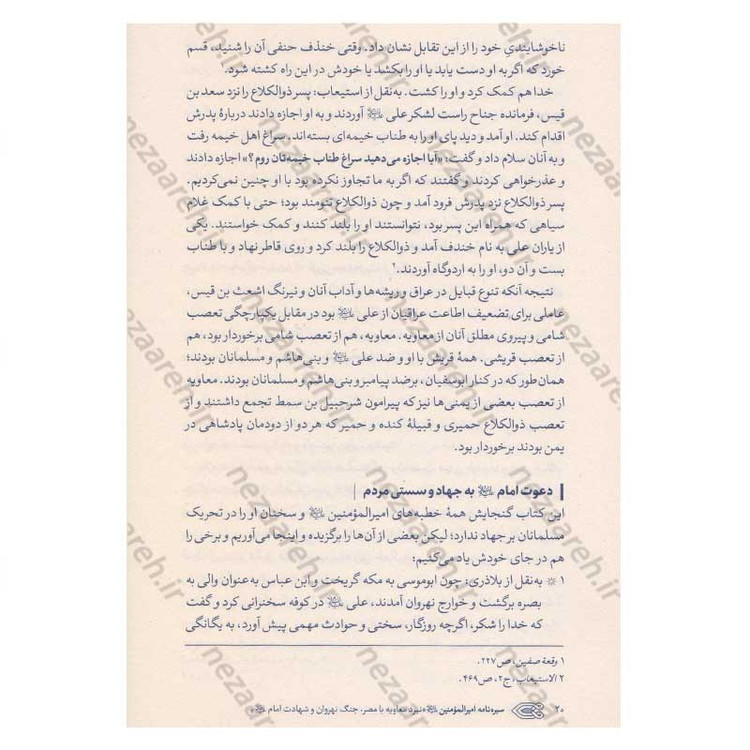 ناخوشایندی خود را از این تقابل نشان داد. وقتی خندف حنفی آن را شنید، قسم
خورد که اگر به او دست یابد یا او را بکشد یا خودش در این راه کشته شود.
خدا هم کمک کرد و او را کشت. به‌نقل از استیعاب: پسر ذوالکلاع را نزد سعد بن
قیس، فرمانده جناح راست لشکر علی آوردند و به او اجازه دادند دربارهٔ پدرش
اقدام کند. او آمد و دید پای او را به طناب خیمه‌ای بسته‌اند. سراغ اهل خیمه رفت
و به آنان سلام داد و گفت: «آیا اجازه می‌دهید سراغ طناب خیمه‌تان روم؟» اجازه دادند
و عذرخواهی کردند و گفتند که اگر به ما تجاوز نکرده بود با او چنین نمی‌کردیم.
پسر ذوالکلاع نزد پدرش فرود آمد و چون ذوالکلاع تنومند بود؛ حتی با کمک غلام
سیاهی که همراه این پسر بود، نتوانستند او را بلند کنند و کمک خواستند. یکی
از یاران علی به نام خندف آمد و ذوالکلاع را بلند کرد و روی قاطر نهاد و با طناب
بست و آن دو، او را به اردوگاه آوردند.۲
نتیجه آنکه تنوع قبایل در عراق و ریشه‌ها و آداب آنان و نیرنگ اشعث بن قیس،
عاملی برای تضعیف اطاعت عراقیان از علی بود در مقابل یکپارچگی تعصب
شامی و پیروی مطلق آنان از معاویه. معاویه، هم از تعصب شامی برخوردار بود، هم
از تعصب قریشی. همهٔ قریش با او و ضد علی و بنی‌هاشم و مسلمانان بودند؛
همان‌طور که در کنار ابوسفیان، برضد پیامبر و بنی‌هاشم و مسلمانان بودند. معاویه
از تعصب بعضی از یمنی‌ها نیز که پیرامون شرحبیل بن سمط تجمع داشتند و از
تعصب ذوالکلاع حمیری و قبیلهٔ کنده و حمیر که هر دو از دودمان پادشاهی در
یمن بودند برخوردار بود.
دعوت امام به جهاد و سستی مردم
این کتاب گنجایش همهٔ خطبه‌های امیرالمؤمنین و سخنان او را در تحریک
مسلمانان بر جهاد ندارد؛ لیکن بعضی از آن‌ها را برگزیده و اینجا می‌آوریم و برخی را
هم در جای خودش یاد می‌کنیم:
۱ به‌نقل از بلاذری: چون ابوموسی به مکه گریخت و ابن عباس به‌عنوان والی به
بصره برگشت و خوارج نهروان آمدند، علی در کوفه سخنرانی کرد و گفت
که خدا را شکر، اگرچه روزگار، سختی و حوادث مهمی پیش آورد، به یگانگی
۱ وقعة صفین، ص۲۲۷.
۲ الاستیعاب، ج۲، ص۴۶۹.
۲۰ سیره‌نامه امیرالمؤمنین «نبرد معاویه با مصر، جنگ نهروان و شهادت امام»
nezaareh.ir